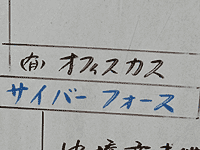 (有) オフィスカス
サイバーフォース